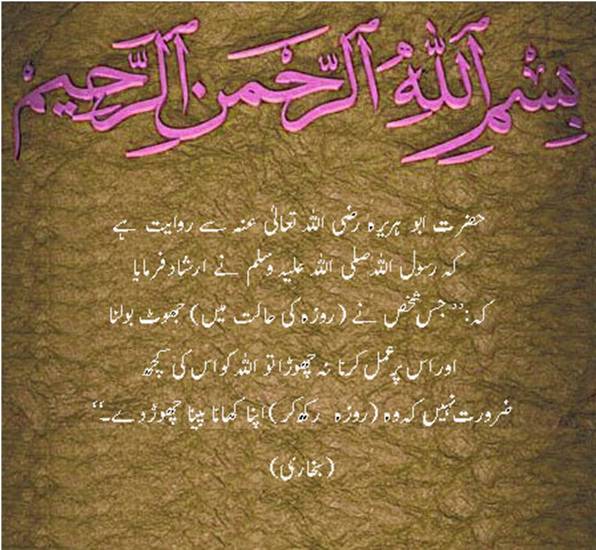 بِسْمِ اللهِ الرَّحْمٰنِ الرَّحِيمِ
حضرت ابو ہریرہ رضی اللہ تعالیٰ عنہ سے روایت ہے
کہ رسول اللہ صلی اللہ علیہ وسلم نے ارشاد فرمایا
کہ:”جس شخص نے (روزہ کی حالت میں) جھوٹ بولنا
اور اس پر عمل کرنا نہ چھوڑا تو اللہ کو اس کی کچھ
ضرورت نہیں کہ وہ (روزہ رکھ کر) اپنا کھانا پینا چھوڑ دے۔“
(بخاری)